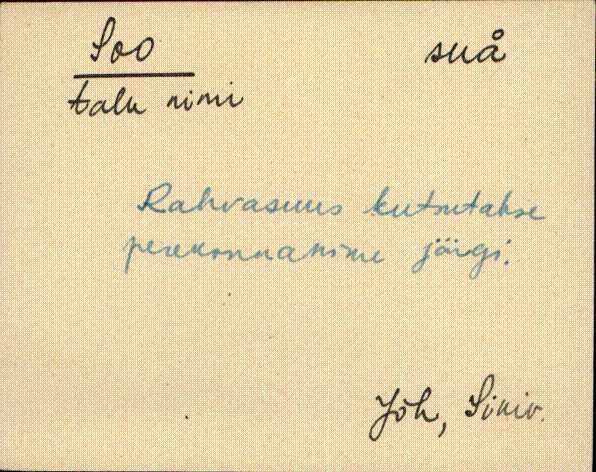 Soo suå
talu nimi
Rahvasuus kutsutakse
perekonnanime järgi.
Jõh,